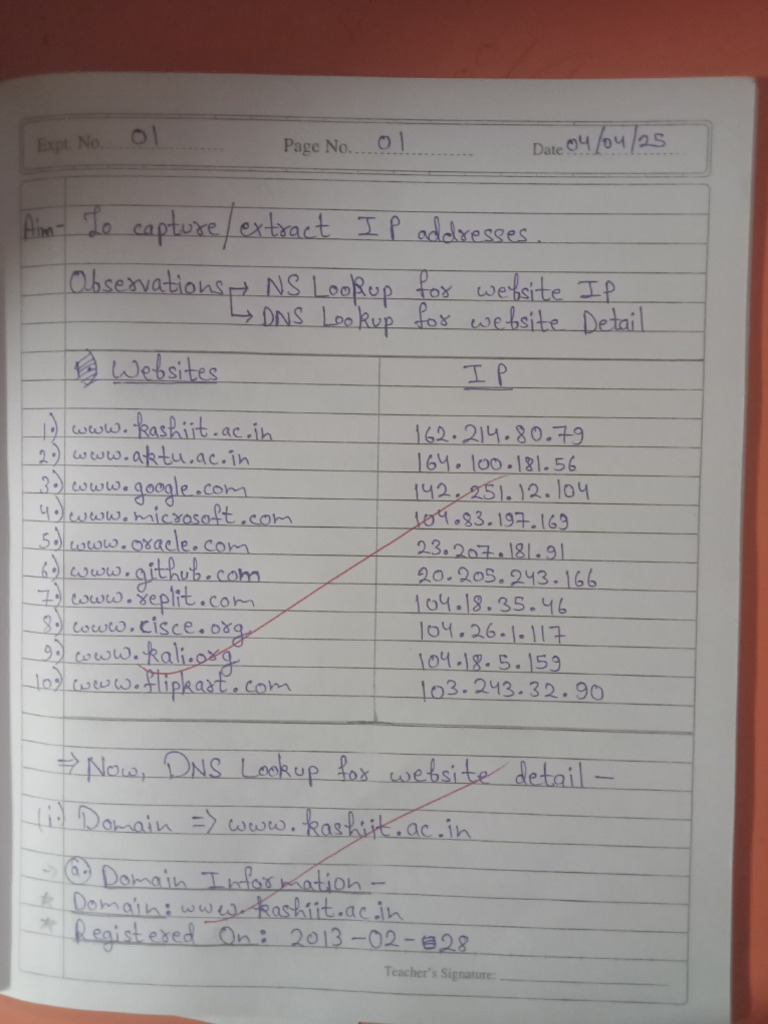 Expt. No. 01 Page No. 01 Date 04/04/25
Aim- To capture/extract IP addresses.
Observations → NS Lookup for website IP
↳ DNS Lookup for website Detail
Websites IP
1.) www.kashiit.ac.in 162.214.80.79
2.) www.aktu.ac.in 164.100.181.56
3.) www.google.com 142.251.12.104
4.) www.microsoft.com 104.83.197.169
5.) www.oracle.com 23.207.181.91
6.) www.github.com 20.205.243.166
7.) www.replit.com 104.18.35.46
8.) www.cisce.org 104.26.1.117
9.) www.kali.org 104.18.5.159
10.) www.flipkart.com 103.243.32.90
⇒ Now, DNS Lookup for website detail -
(i.) Domain => www.kashiit.ac.in
→ (a.) Domain Information -
* Domain: www.kashiit.ac.in
* Registered On: 2013-02-28
Teacher's Signature: